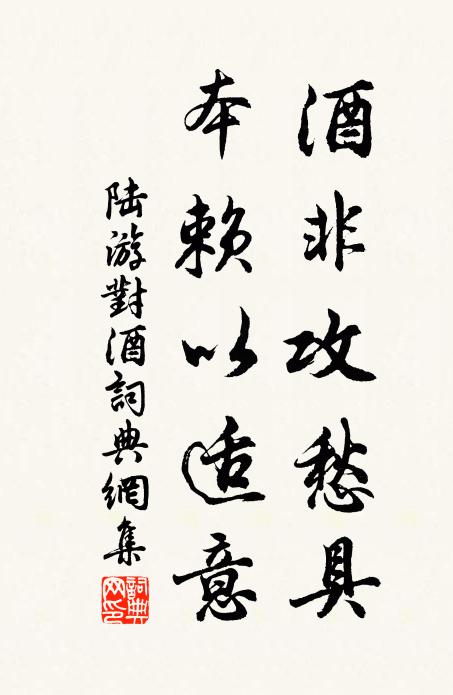 酒非攻愁具
本赖以适意
陆游對酒詞典網集
詞典網印